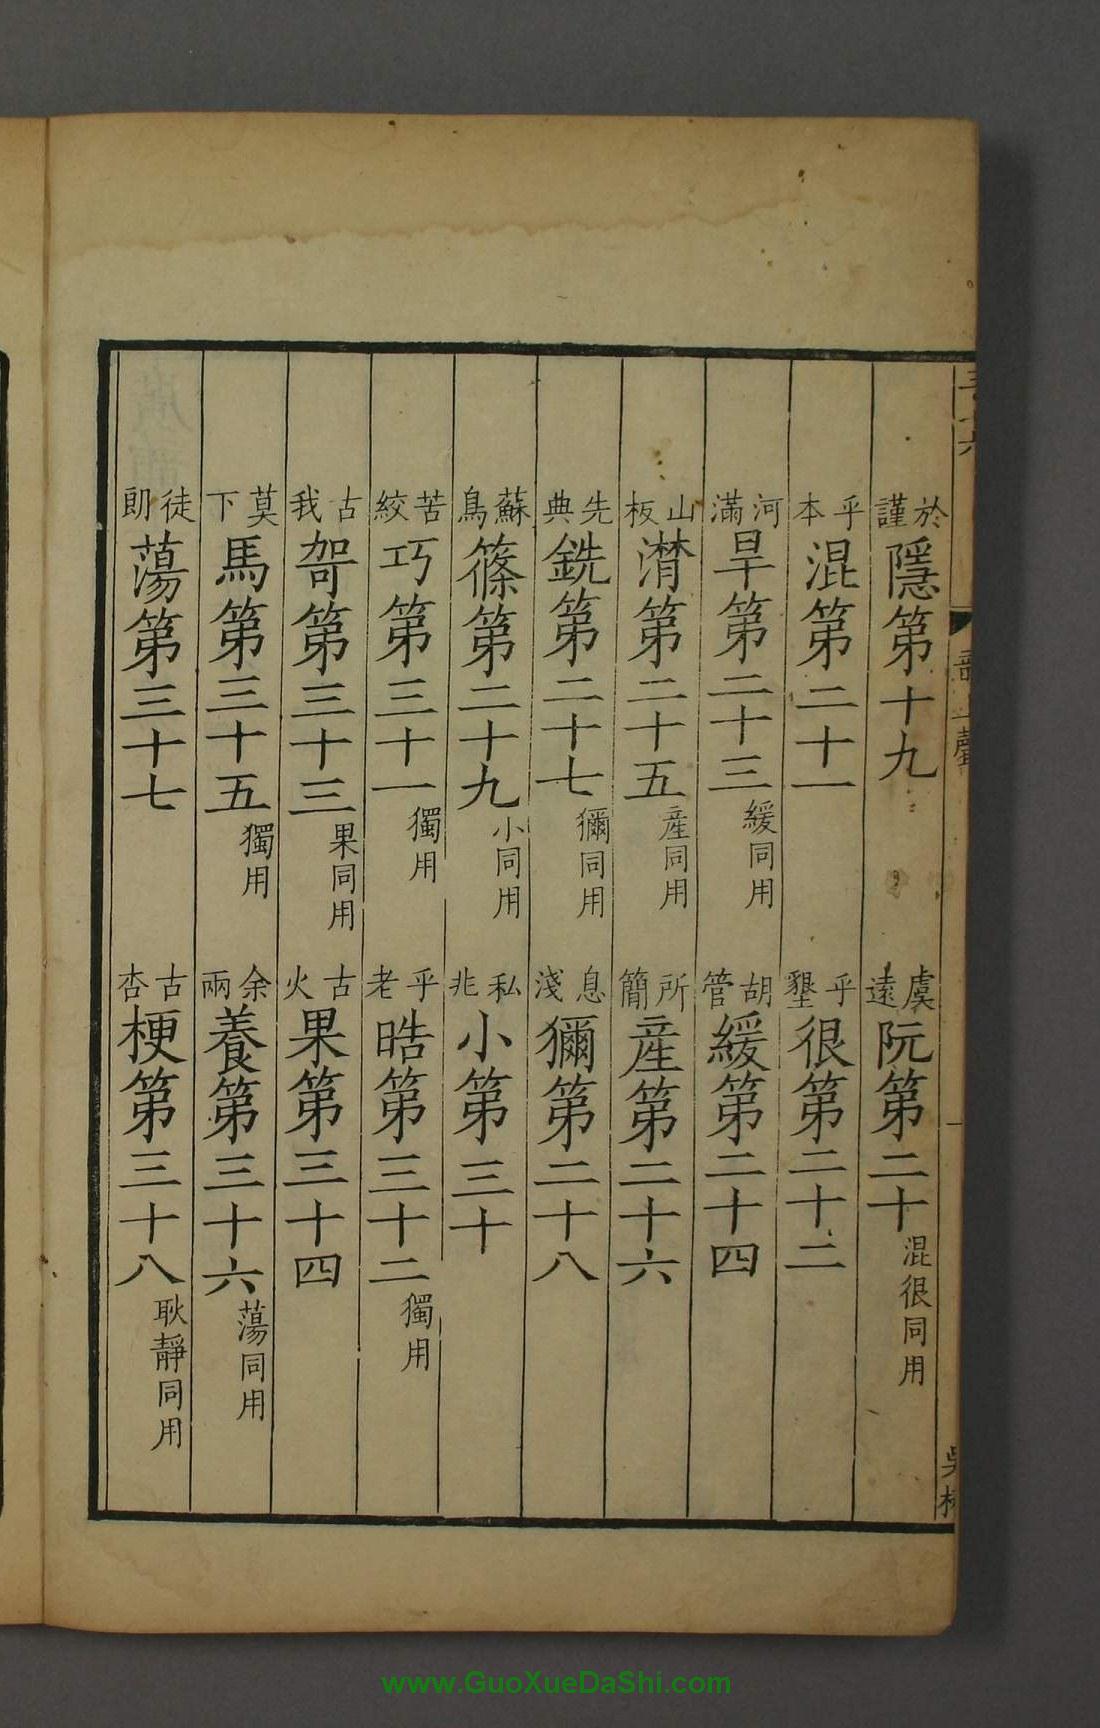 於謹隱第十九 虞遠阮第二十混很同用
乎本混第二十一 乎墾很第二十二
河滿旱第二十三緩同用 胡管緩第二十四
山板潸第二十五産同用 所簡産第二十六
先典銑第二十七獮同用 息淺獮第二十八
蘇鳥篠第二十九小同用 私兆小第三十
苦絞巧第三十一獨用 乎老晧第三十二獨用
古我哿第三十三果同用 古火果第三十四
莫下馬第三十五獨用 余兩養第三十六蕩同用
徒朗蕩第三十七 古杏梗第三十八耿靜同用
www.GuoXueDaShi.com